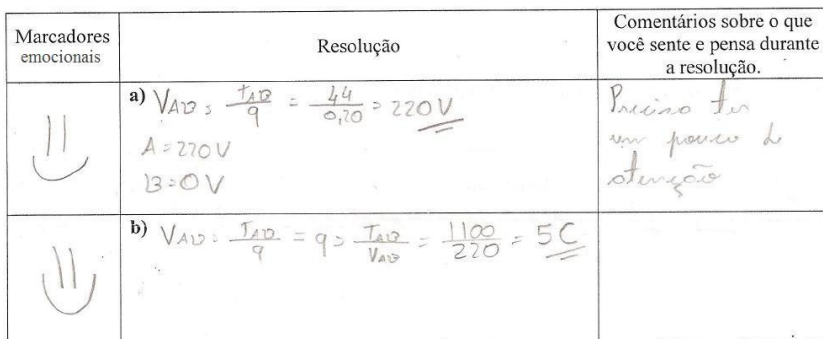 Marcadores
emocionais
Resolução
Comentários sobre o que
você sente e pensa durante
a resolução.
a) VAB = TAB/q = 44/0,20 = 220V
A = 220V
B = 0V
Preciso ter
um pouco de
atenção
b) VAB = TAB/q = q = TAB/VAB = 1100/220 = 5C